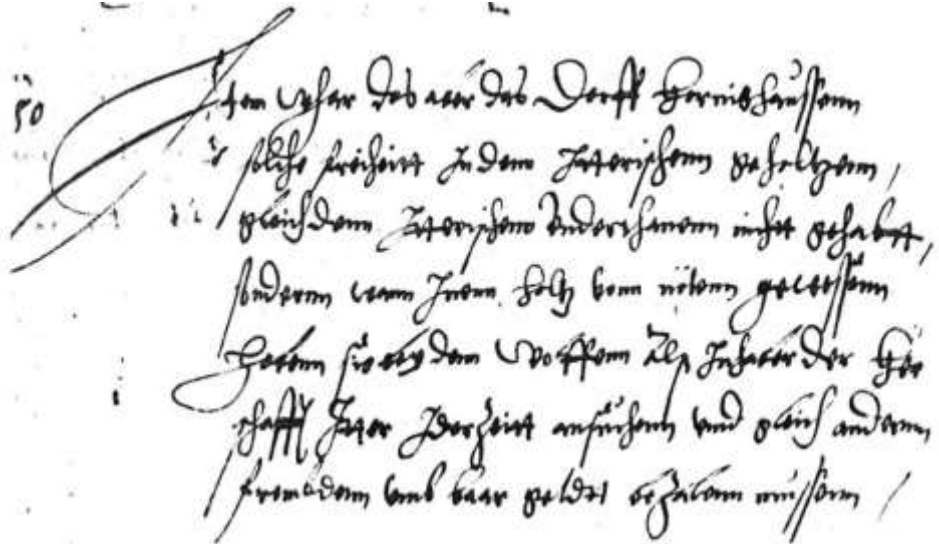 50
Item Whar das aber das Dorff Hernishaussenn
solche freiheitt In denn Itterischenn geholtzenn,
gleich denn Itterischenn Underthanenn nicht gehabtt,
sondernn wann Inenn Holtz vonn nötenn gewessenn
Habenn sie bey denn Wolffenn Alß Inhaber der Her
schafft Itter Iderzeitt ansuchenn unnd gleich anderenn
frembdenn umb baar geldtt bezalenn müssenn /